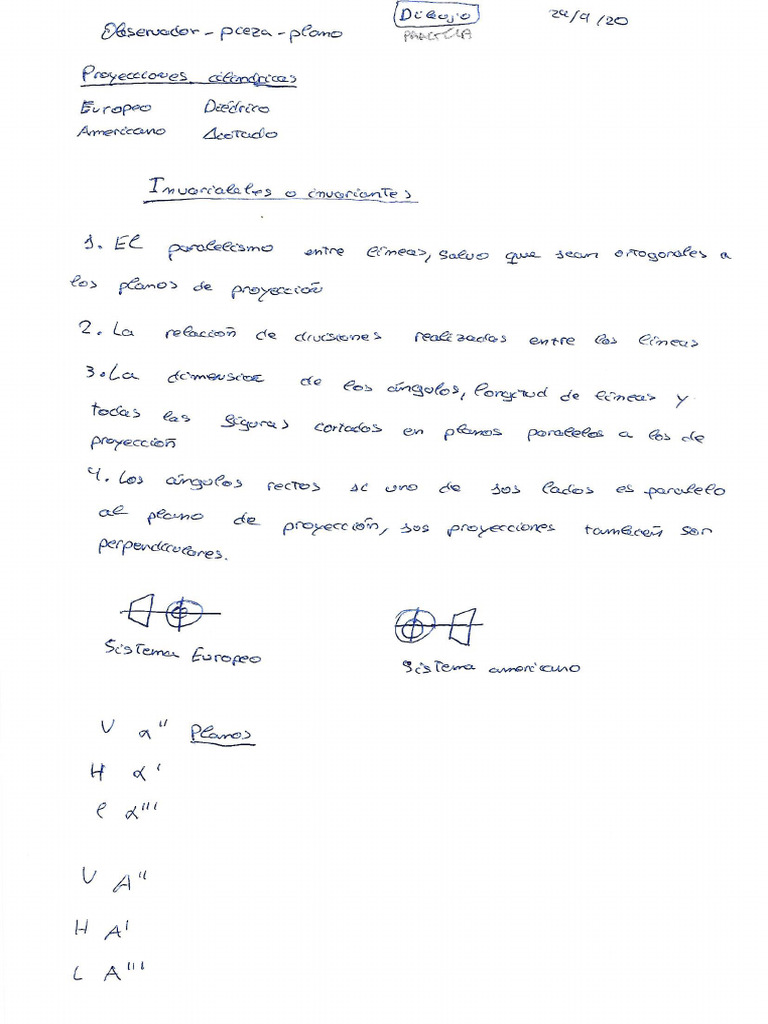 Dibujo
PRACTICA
29/9/20
Observador - pieza - plano
Proyecciones cilíndricas
Europeo Diédrico
Americano Acotado
Invariables o invariantes
1. El paralelismo entre líneas, salvo que sean ortogonales a
los planos de proyección
2. La relación de divisiones realizadas entre las líneas
3. La dimensión de los ángulos, longitud de líneas y
todas las figuras cortadas en planos paralelos a los de
proyección
4. Los ángulos rectos si uno de sus lados es paralelo
al plano de proyección, sus proyecciones también son
perpendiculares.
Sistema Europeo
Sistema americano
V α'' Planos
H α'
α'''
V A''
H A'
L A'''